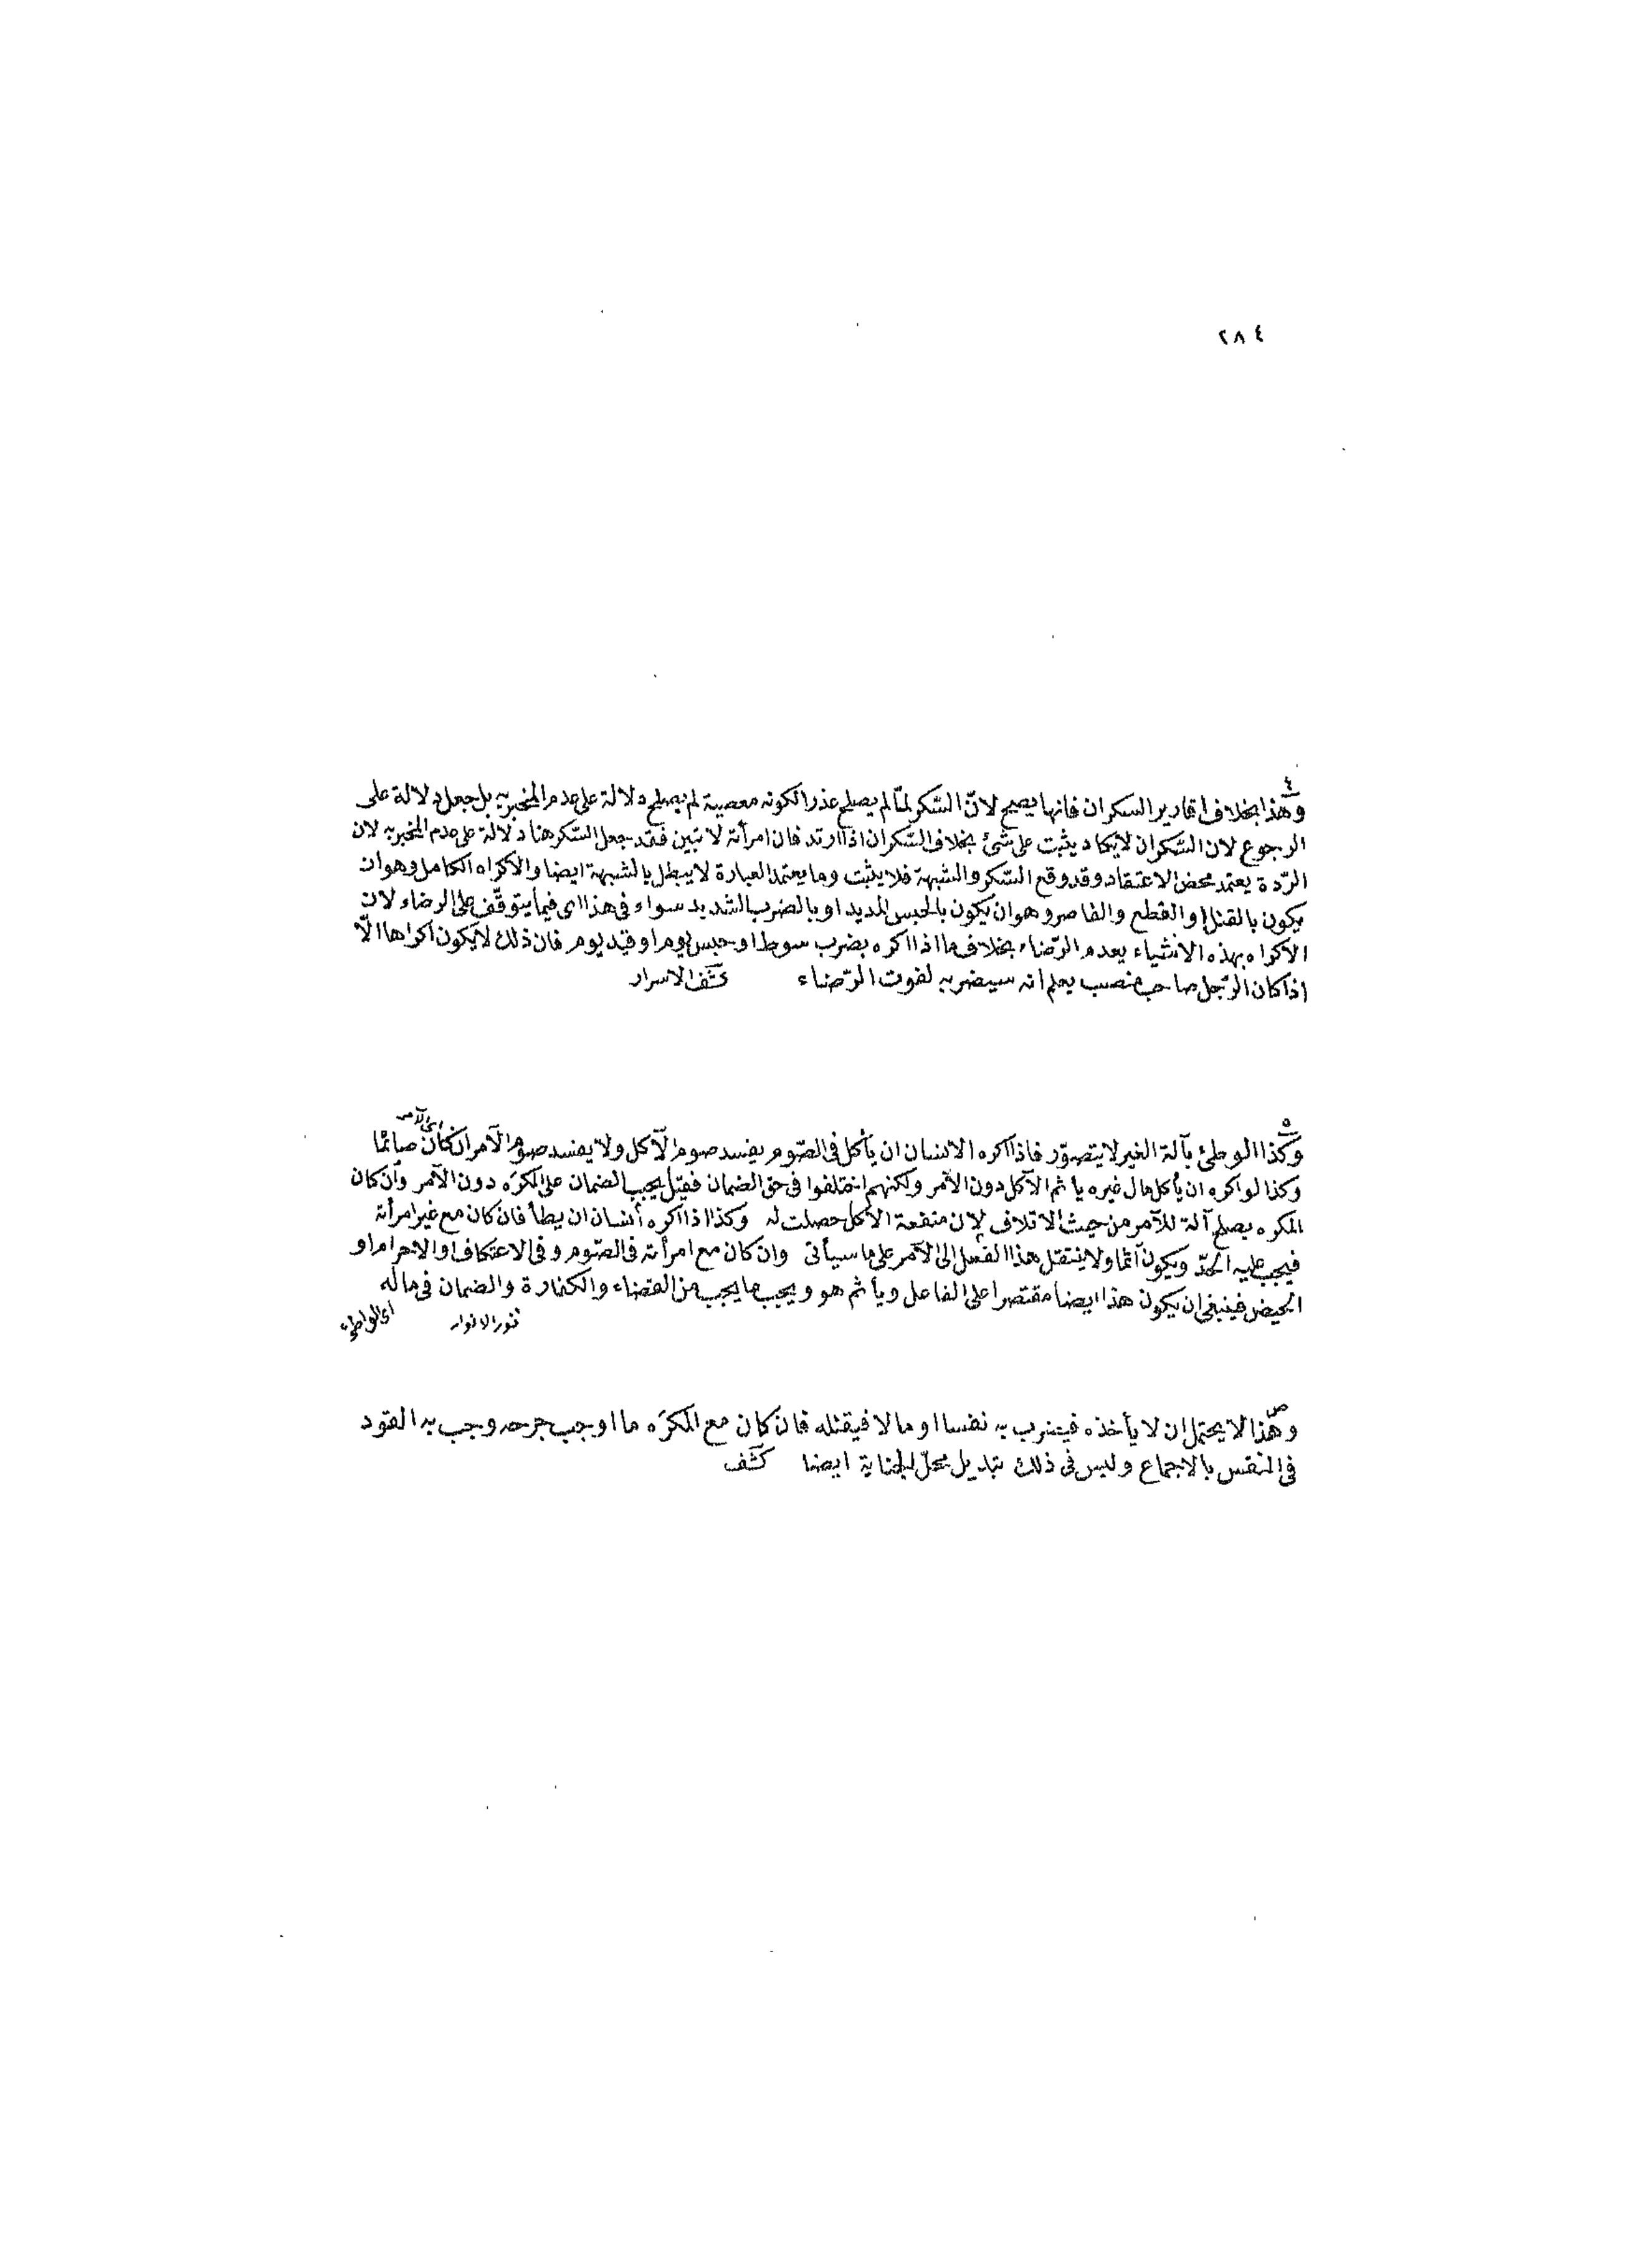 ٢٨٤
٤
وهذا بخلاف اقارير السكران فانها يصح لانّ السّكر لمّا لم يصلح عذرا لكونه معصية لم يصلح دلالة على عدم المخبر به بل جعل دلالة على
الرجوع لان السّكران لا يكاد يثبت على شئ بخلاف السّكران اذا ارتد فان امرأته لا تبين فقد جعل السّكر هنا دلالة على عدم المخبر به لان
الرّدة يعتمد محض الاعتقاد وقد وقع السّكر والشبهة فلا يثبت وما يعتمد العبارة لا يبطل بالشبهة ايضا والاكراه الكامل وهو ان
يكون بالقتل او القطع والقاصر وهو ان يكون بالحبس المديد او بالضرب الشديد سواء فى هذا اى فيما يتوقّف على الرضاء لان
الاكراه بهذه الاشياء يعدم الرّضاء بخلاف ما اذا اكره بضرب سوط او حبس يوم او قيد يوم فان ذلك لا يكون اكراها الاّ
اذا كان الرّجل صاحب منصب يعلم انه سيضر به لفوت الرّضاء كشف الاسرار
٥
اى الآمر
وكذا الوطئ بآلة الغير لا يتصوّر فاذا اكره الانسان ان يأكل فى الصّوم يفسد صوم الآكل ولا يفسد صوم الآمر ان كان صائما
وكذا لو اكره ان يأكل مال غيره يأثم الآكل دون الآمر ولكنهم اختلفوا فى حق الضمان فقيل يجب الضمان على المكرَه دون الآمر وان كان
المكره يصلح آلة للآمر من حيث الاتلاف لان منفعة الاكل حصلت له وكذا اذا اكره أنسان ان يطأ فان كان مع غير امرأته
فيجب عليه الحدّ ويكون آثما ولا ينتقل هذا الفعل الى الآمر على ما سيأتى وان كان مع امرأته فى الصّوم وفى الاعتكاف او الاحرام او
الحيض فينبغى ان يكون هذا ايضا مقتصرا على الفاعل ويأثم هو ويجب ما يجب من القضاء والكفارة والضمان فى ماله
اى الواطئ نور الانوار
ص
وهذا لا يحتمل ان لا يأخذه فيضرب به نفسا او مالا فيقتله فان كان مع المكرَه ما اوجب جرحه وجب به القود
فى النفس بالاجماع وليس فى ذلك تبديل محلّ الجناية ايضا كشف